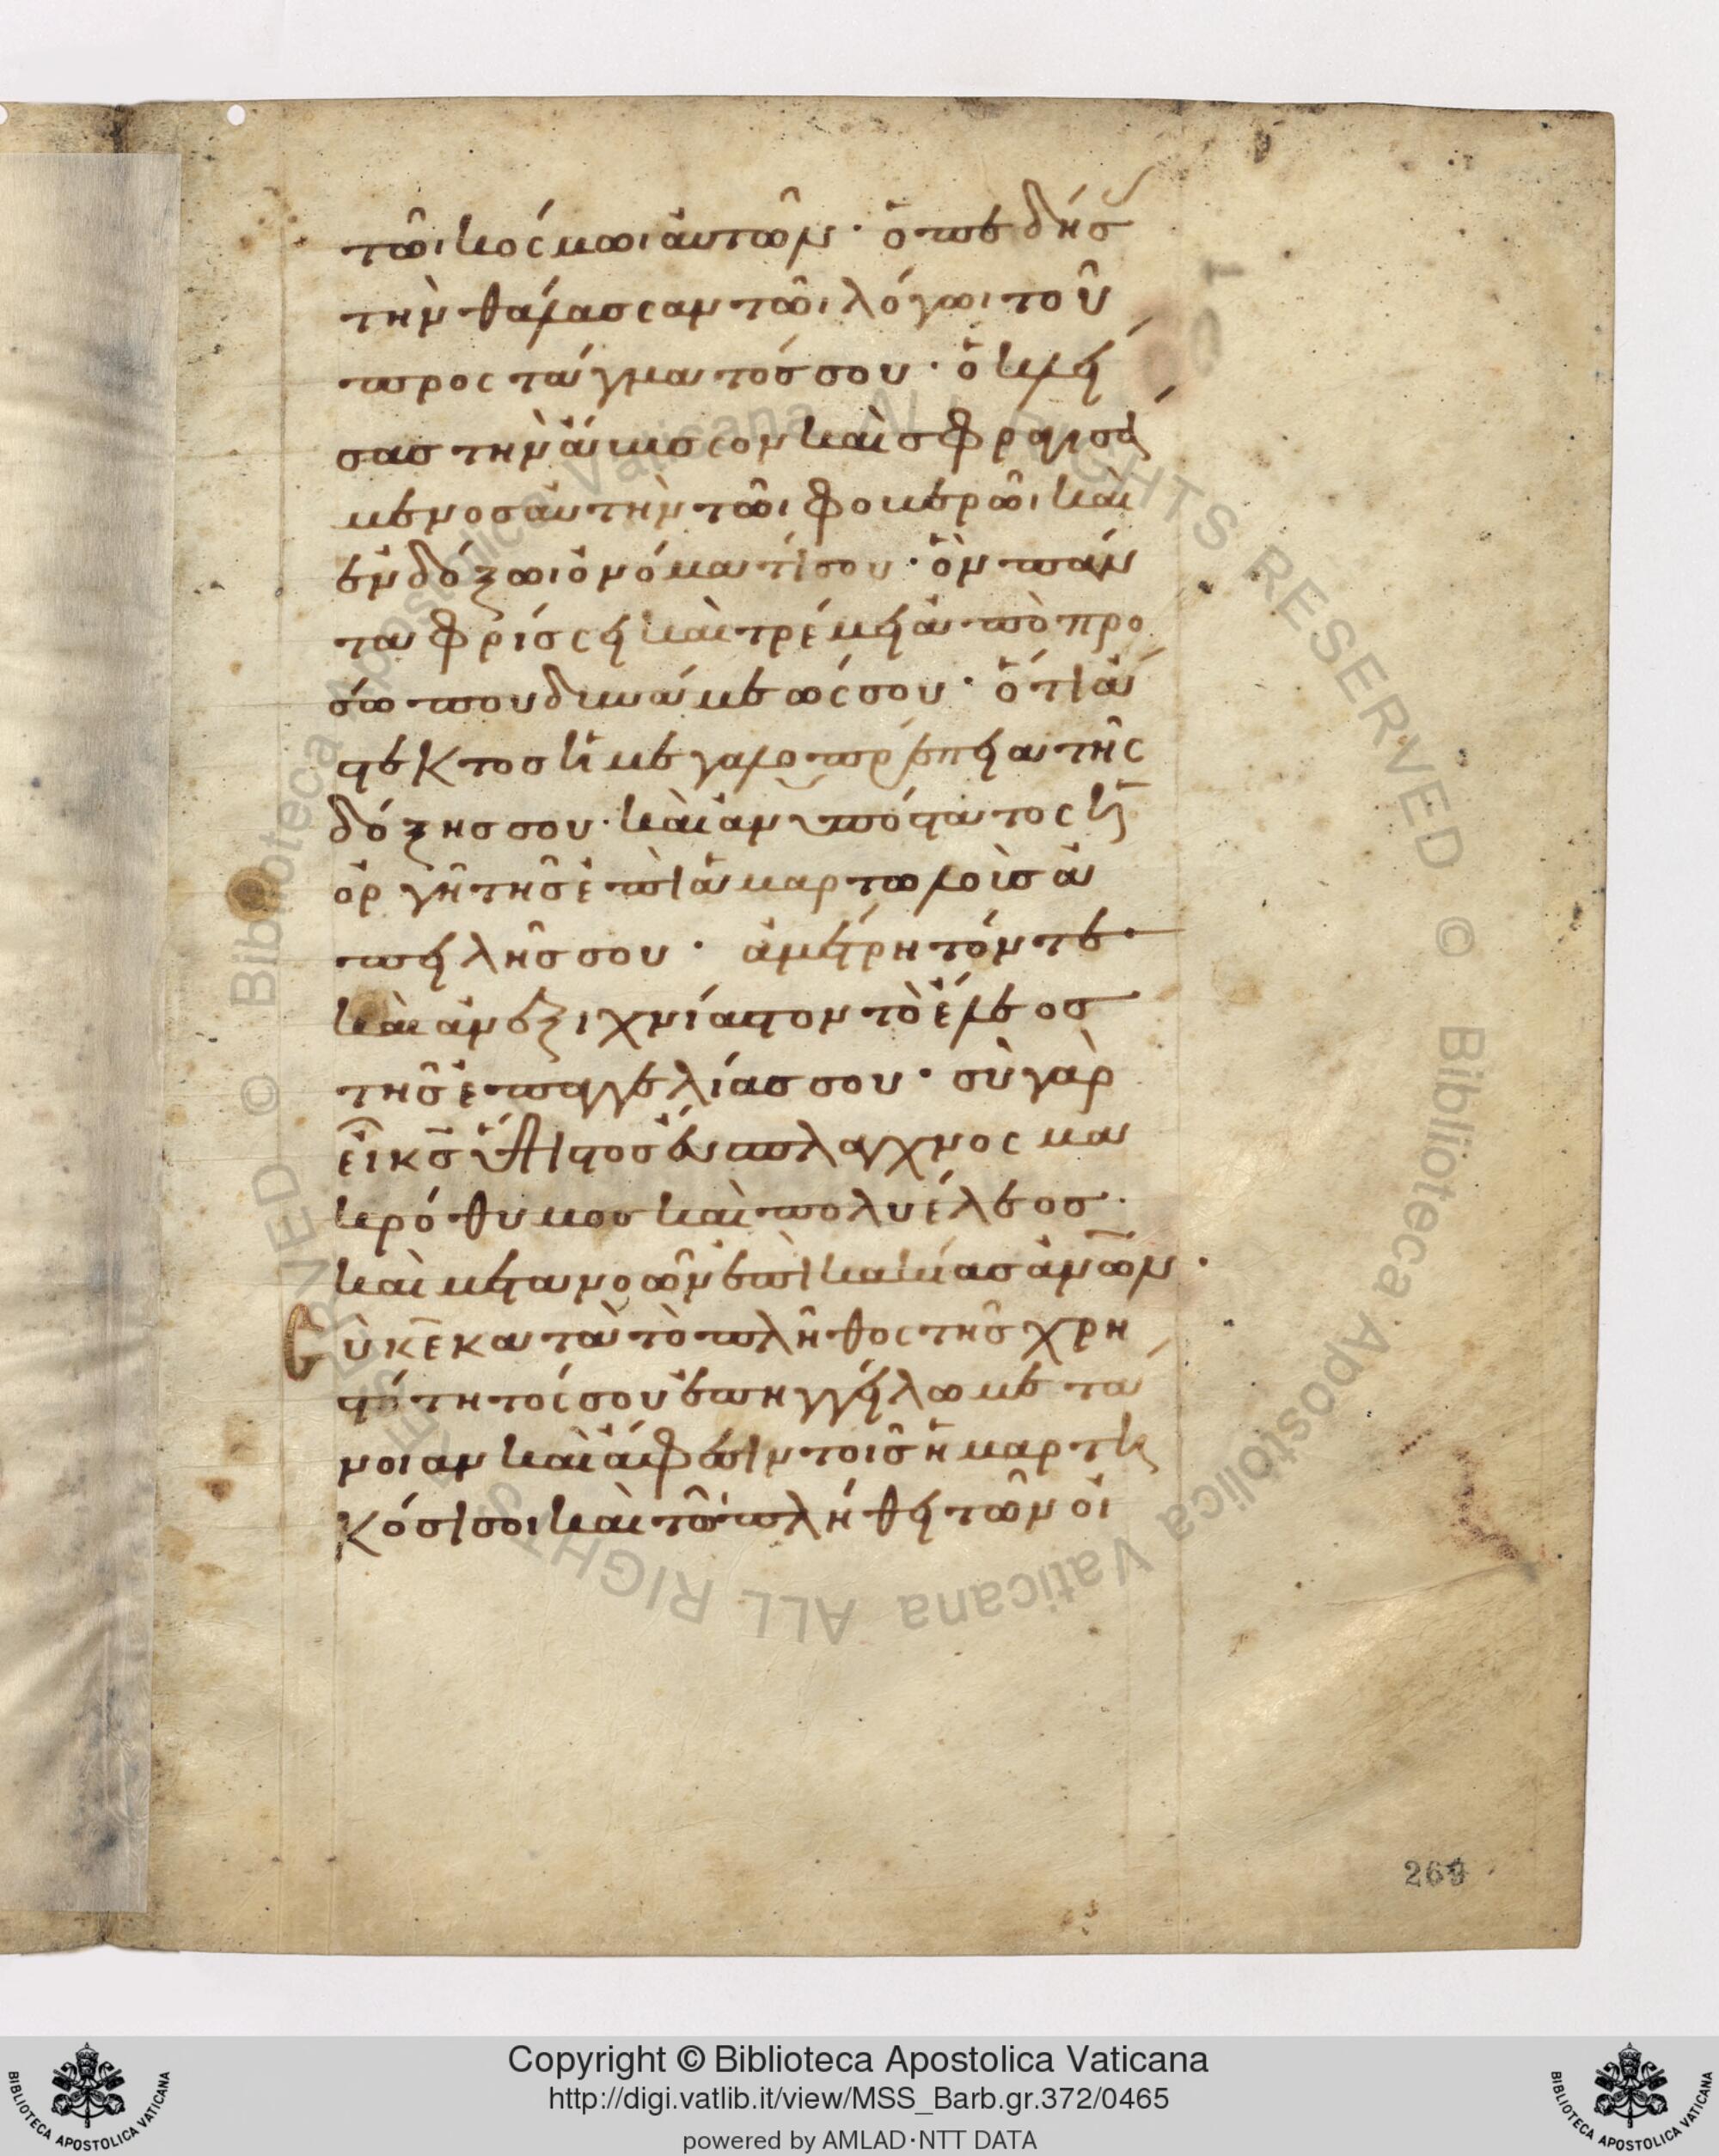 τῶι κόσμωι αὐτῶν· ὁ πεδήσ(ας)
τὴν θάλασσαν τῶι λόγωι τοῦ
προςτάγματόσ σου· ὁ κλεί
σασ τὴν ἄβυσσον καὶ σφραγισά
μενοσ αὐτὴν τῶι φοβερῶι καὶ
ἐνδόξωι ὀνόματί σου· ὃν πάν
τα φρίσσει καὶ τρέμει ἀπὸ προ
σώπου δυνάμεώς σου· ὅτι ἄ
στεκτοσ ἡ μεγαλοπρέπεια τῆς
δόξησ σου· καὶ ἀνυπόστατος ἡ
ὀργὴ τῆσ ἐπὶ ἁμαρτωλοὺσ ἀ
πειλῆσ σου· ἀμέτρητόν τε
καὶ ἀνεξιχνίαστον τὸ ἔλεοσ
τῆσ ἐπαγγελίασ σου· σὺ γὰρ
εἶ κ̅σ̅ ὕψιστοσ εὔσπλαγχνος μα
κρόθυμοσ καὶ πολυέλεοσ·
καὶ μετανοῶν ἐπὶ κακίασ ἀν̅ω̅ν·
Σὺ κ̅ε̅ κατὰ τὸ πλῆθος τῆσ χρη
στότητός σου ἐπηγγείλω μετά
νοιαν καὶ ἄφεσιν τοῖσ ἡμαρτη
κόσι σοι καὶ τῶ πλήθει τῶν οἰ
269
Copyright © Biblioteca Apostolica Vaticana
http://digi.vatlib.it/view/MSS_Barb.gr.372/0465
powered by AMLAD·NTT DATA
BIBLIOTECA APOSTOLICA VATICANA
BIBLIOTECA APOSTOLICA VATICANA
© Biblioteca Apostolica Vaticana ALL RIGHTS RESERVED © Biblioteca Apostolica Vaticana ALL RIGHTS RESERVED